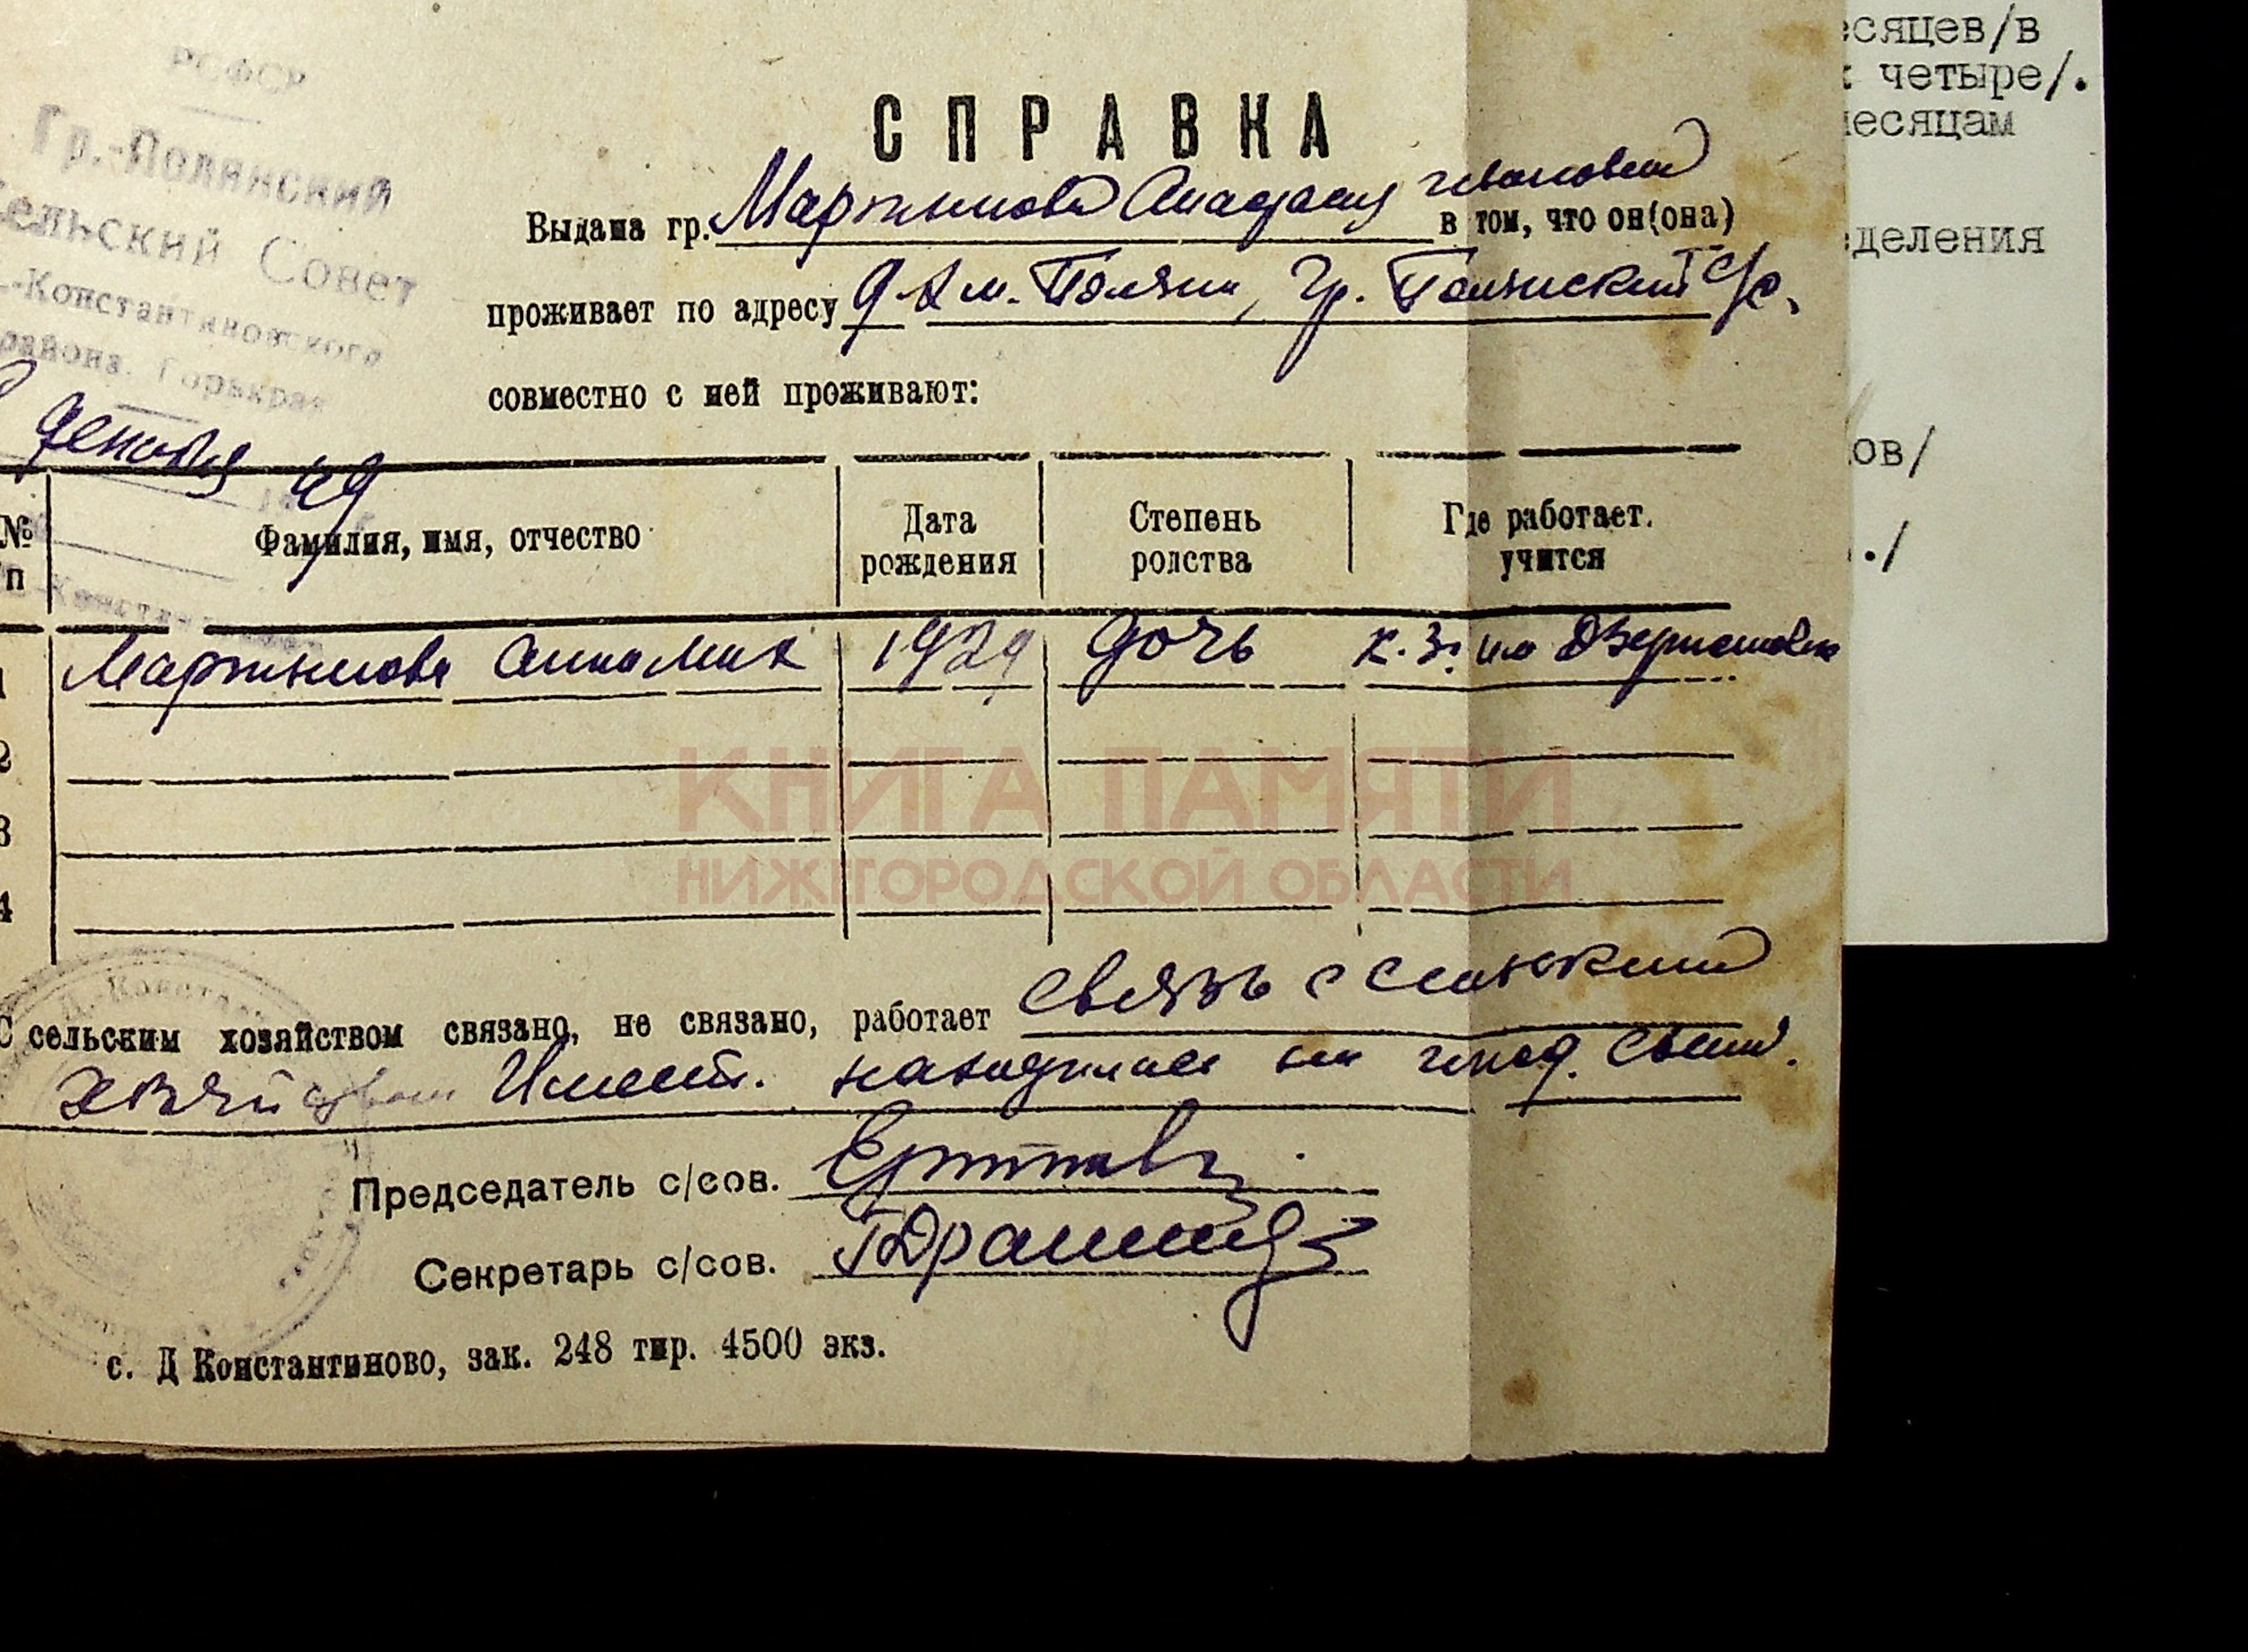 РСФСР
Гр.-Полянский
Сельский Совет
-Константиновского
района. Горькрая
декабря 49
СПРАВКА
Выдана гр. Мартынова Анастасия Ивановна в том, что он(она)
проживает по адресу д. Поляны, Гр. Полянский с/с,
совместно с ней проживают:
№ п
Фамилия, имя, отчество
Дата рождения
Степень родства
Где работает. учится
1 Мартынова Анна Мих 1929 дочь к-з. им Дзержинск
2
3
4
С сельским хозяйством связано, не связано, работает связь с сельским
хозяйством Имеет. находилась на ижд.
Председатель с/сов.
Секретарь с/сов.
с. Д Константиново, зак. 248 тир. 4500 экз.
есяцев/в
четыре/.
месяцам
деления
ов/
./
КНИГА ПАМЯТИ
НИЖЕГОРОДСКОЙ ОБЛАСТИ